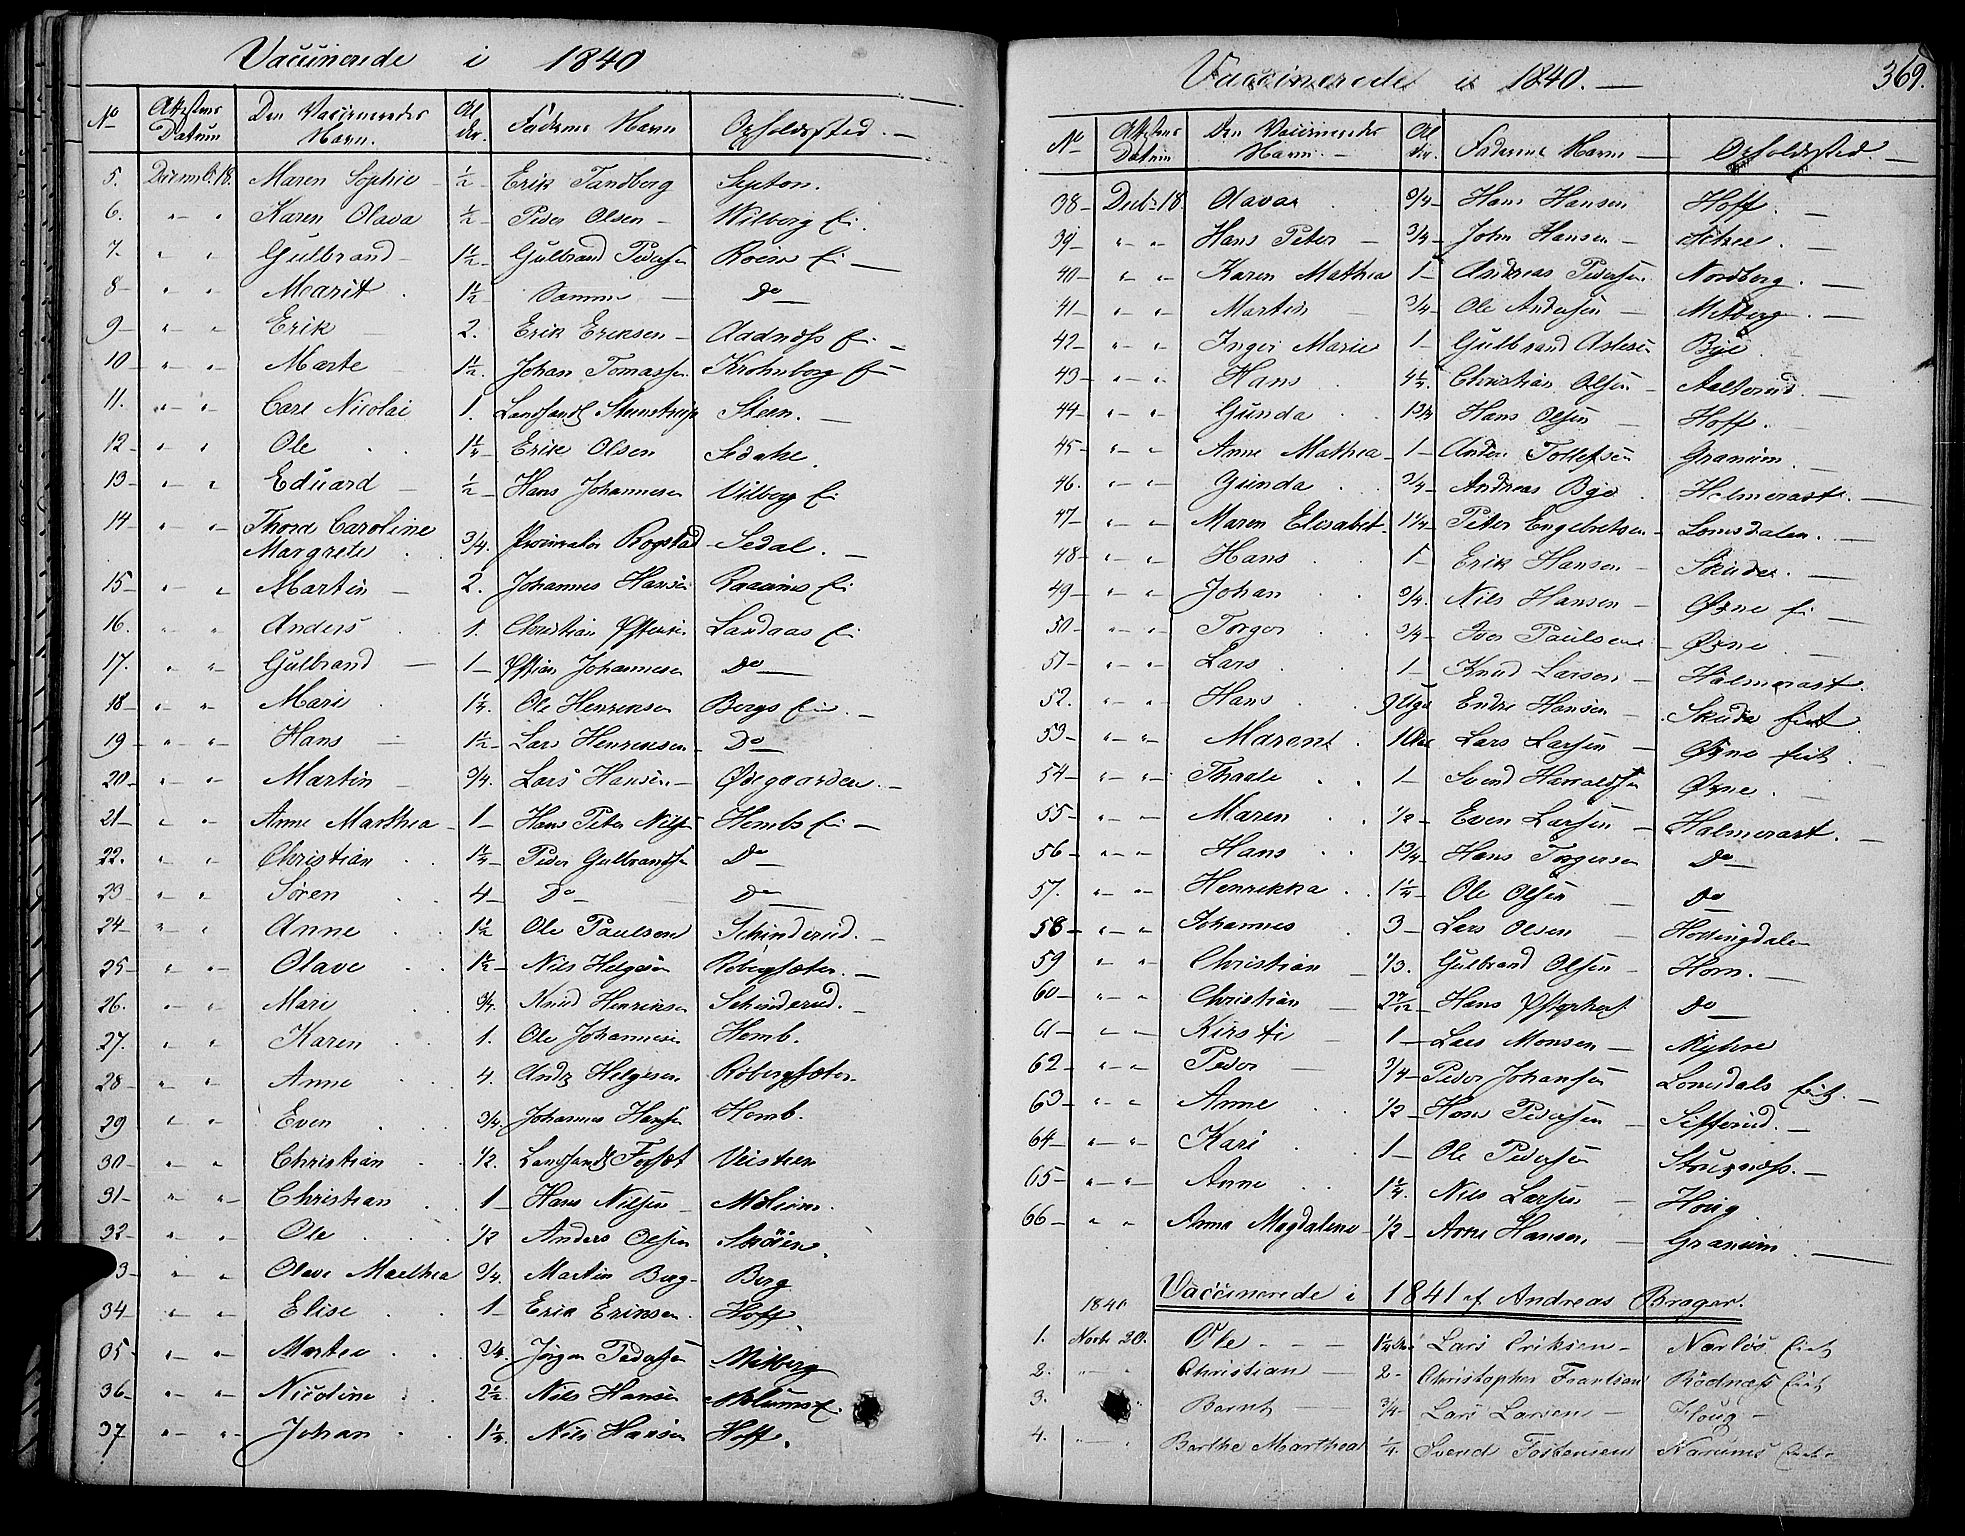 Vaccinerede i 1840
No Attestens Datum Den Vaccineredes Navn. Alder. Faderens Navn Opholdssted.
5. Decemb. 18. Maren Sophie ½ Erik Tandberg
6. " " Karen Olava ½ Peder Olsen Wilberg Ei.
7. " " Gulbrand 1½ Gulbrand Pedersen
8 " " Marit 1½ Samme Do
9 " " Erik 2. Erik Eriksen
10 " " Marte 1½ Johan Tomassen Krohnborg
11. " " Carl Nicolai 1. Steen.
12 " " Ole 1¼ Erik Olsen
13 " " Eduard ½ Hans Johannesen Vilberg Ei
14 " " Thora Caroline
Margrete 3/4. Procurator Rogstad Sedal.
15 " " Martin 2. Johannes Hansen
16. " " Anders 1. Christian Landaas Ei
17. " " Gulbrand 1 Johannesen Do
18 " " Mari 1¼ Ole Henriksen Bergs Ei
19 " " Hans 1½ Lars Henriksen Do
20 " " Martin 3/4. Lars Hansen Ødegaarden.
21 " " Anne Marthea 1 Hans Peter Nilsen Hembs Ei
22. " " Christian 1¼ Peder Gulbrandsen Do
23 " " Søren 4 Do Do
24 " " Anne 1½ Ole Paulsen Schinderud.
25 " " Olave 1½ Nils Helgesen Røbergsæter.
26. " " Mari 3/4. Knud Henriksen Schinderud.
27. " " Karen 1. Ole Johannesen Homb.
28 " " Anne 4. Andr. Helgesen Røbergsæter
29 " " Even 3/4. Johannes Hansen Homb.
30 " " Christian ½. Veistien
31 " " Christian 1 Hans Nilsen
32 " " Ole ½ Anders Olsen Skøien.
3 " " Olave Marthea 3/4. Martin Berg Berg
34 " " Elise 1 Erik Eriksen. Hoff.
35 " " Martea 3/4. Jørgen Pedersen Milberg
36 " " Nicoline 2½. Nils Hansen
37 " " Johan 1¼. Nils Hansen Hoff.
Vaccinerede i 1840. 369.
No Attestens Datum Den Vaccineredes Navn. Alder. Faderens Navn Opholdssted.
38 Decb. 18. Olava 3/4 Hans Hansen Hoff.
39 " " Hans Peter 3/4 John Hansen
40 " " Karen Mathea 1 Andreas Pedersen Nordberg.
41 " " Martin 3/4 Ole Andersen Milberg.
42 " " Inger Marie 1 Gulbrand Bye
43 " " Hans Christian Olsen
44 " " Gunda 1 3/4 Hans Olsen Hoff.
45 " " Anne Mathea 1 Anders Tollefsen Granum.
46. " " Gunda 3/4 Andreas Bye Halmerast.
47 " " Maren Elisabet 1¼ Peter Engebretsen Lomsdalen.
48 " " Hans 1 Erik Hansen
49 " " Johan 3/4. Nils Hansen Øxne Ei
50 " " Torger 3/4 Iver Paulsen Øxne.
51 " " Lars 1 Knud Larsen Halmerast.
52. " " Hans Uger Endre Hansen Eiet
53 " " Marent Lars Larsen Øxne Eiet
54 " " Thaale 1 Svend Øxne.
55 " " Maren ½ Even Larsen Halmerast.
56 " " Hans 1 3/4 Hans Torgersen Do
57. " " Henrikka 1¼ Ole Olsen Do
58 " " Johannes 3 Lars Olsen
59 " " Christian ⅓. Gulbrand Olsen Horn.
60 " " Christian Hans Do
61 " " Kirsti 1 Lars Monsen Myhre
62 " " Peder 3/4 Peder Johansen Lomsdals Eiet.
63 " " Anne ½ Hans Pedersen Sifferud.
64 " " Kari 1 Ole Pedersen
65 " " Anne 1¼. Nils Larsen Houg
66 " " Anna Magdalena ½ Arne Hansen Granum.
1840 Vaccinerede i 1841 af Andreas Brager.
1. 20. Ole 1¼ Lars Eriksen Eiet
2. " " Christian 2 Christopher Rødnæss Eiet
3. " Barnt 3/4 Lars Larsen Houg
4. " " Barthe Marthea ¼ Svend Tostensen Narums Eiet